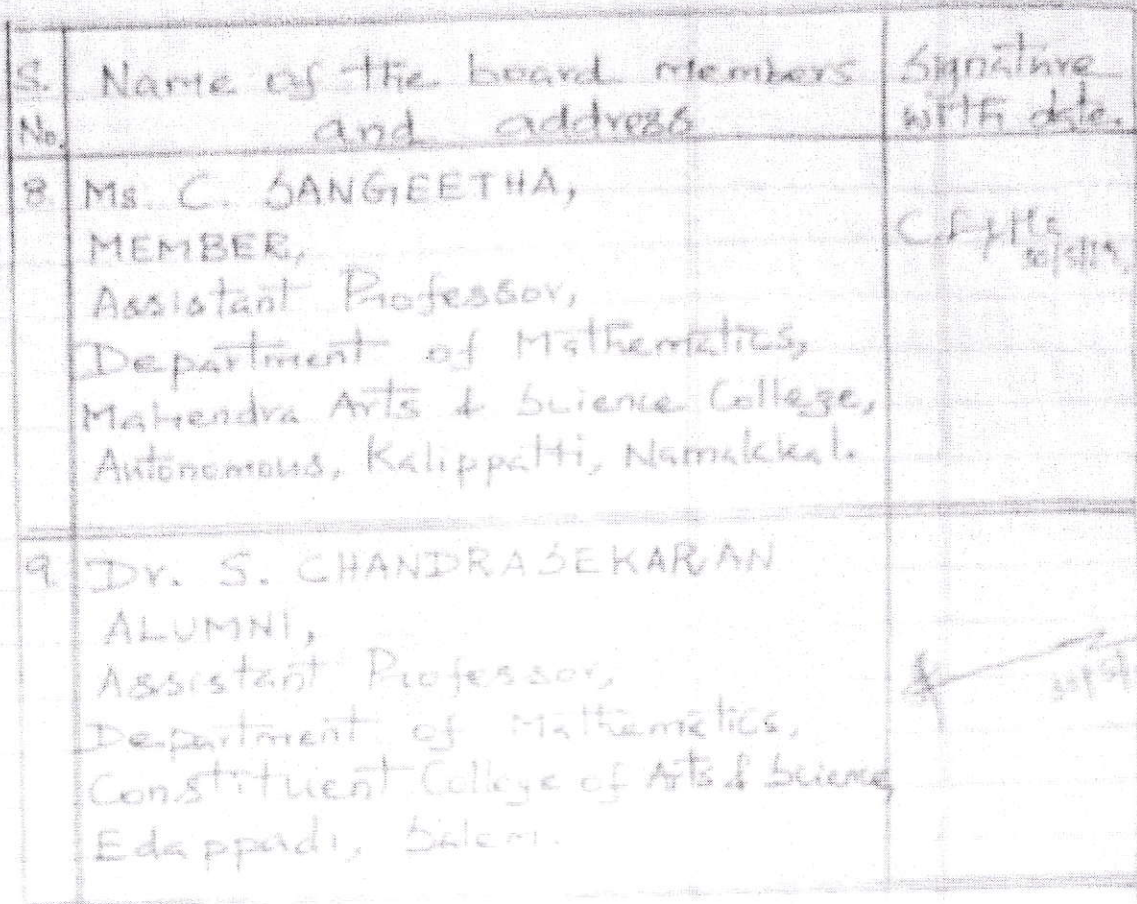 S. No.
Name of the board members
and address
Signature
with date.
8. Ms. C. SANGEETHA,
MEMBER,
Assistant Professor,
Department of Mathematics,
Mahendra Arts & Science College,
Autonomous, Kalippatti, Namakkal.
9. Dr. S. CHANDRASEKARAN
ALUMNI,
Assistant Professor,
Department of Mathematics,
Constituent College of Arts & Science
Edappadi, Salem.